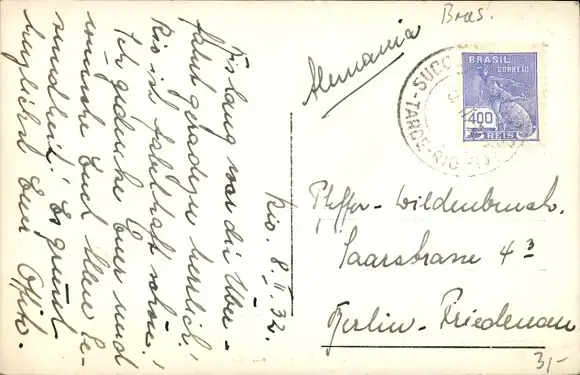 Bras.
Alemania
BRASIL
CORREIO
400
REIS
SUCC
TARDE-RIO
Rio. 8.II.32.
Bislang war die Über-
fahrt geradezu herrlich!
Rio ist fabelhaft schön!
Ich gedenke Euer und
wünsche Euch allen Ge-
sundheit! Es grüsst
herzlichst Euer Otto.
Pfeffer-Wildenbruch.
Saarstrasse 4 3
Berlin-Friedenau
3,-